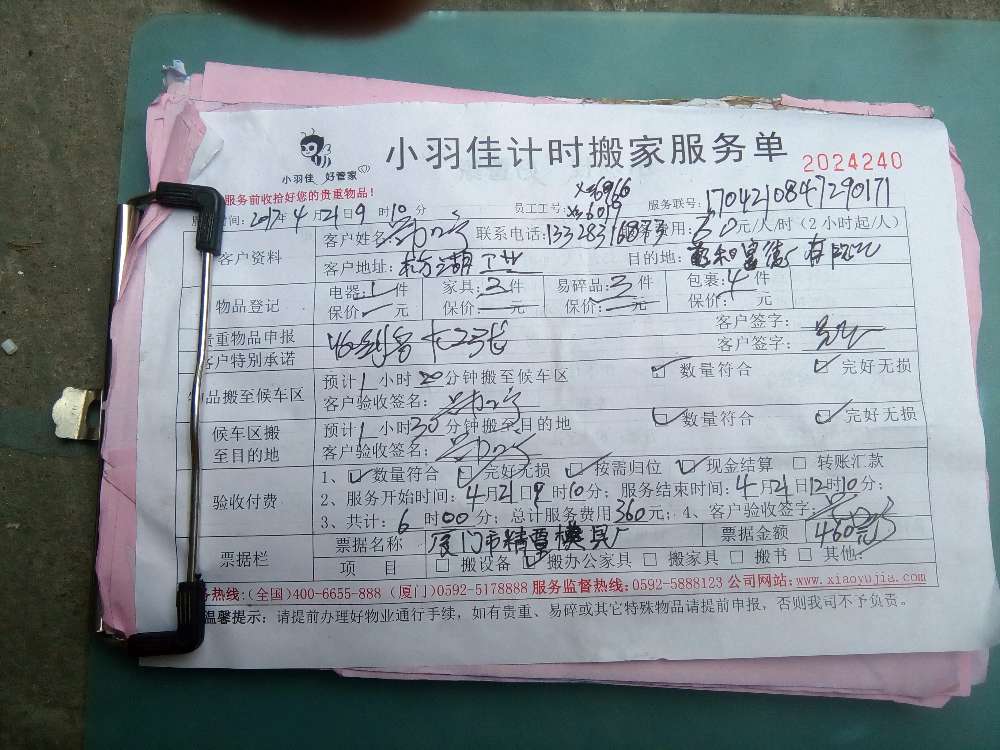 小羽佳计时搬家服务单
2024240
小羽佳 好管家
服务前收拾好您的贵重物品!
时间:2017年4月21日9时10分 员工工号: xm6966 xm6019 服务联号:1704210847290171
客户资料 客户姓名: 联系电话: 费用:60元/人/时(2小时起/人)
客户地址: 目的地:
物品登记 电器:1件 家具:2件 易碎品:3件 包裹:4件
保价: 元 保价: 元 保价: 元 保价: 元
贵重物品申报 客户签字:
客户特别承诺 客户签字:
物品搬至候车区 预计1小时20分钟搬至候车区 ☑数量符合 ☑完好无损
客户验收签名:
候车区搬至目的地 预计1小时30分钟搬至目的地 ☑数量符合 ☑完好无损
客户验收签名:
验收付费 1、☑数量符合 ☑完好无损 ☑按需归位 ☑现金结算 □转账汇款
2、服务开始时间:4月21日9时10分;服务结束时间:4月21日12时10分;
3、共计:6时00分;总计服务费用360元;4、客户验收签字:
票据栏 票据名称 厦门市精雪模具厂 票据金额 460元
项 目 □搬设备 ☑搬办公家具 □搬家具 □搬书 □其他:
务热线:(全国)400-6655-888 (厦门)0592-5178888 服务监督热线:0592-5888123 公司网站:www.xiaoyujia.com
温馨提示:请提前办理好物业通行手续,如有贵重、易碎或其它特殊物品请提前申报,否则我司不予负责。